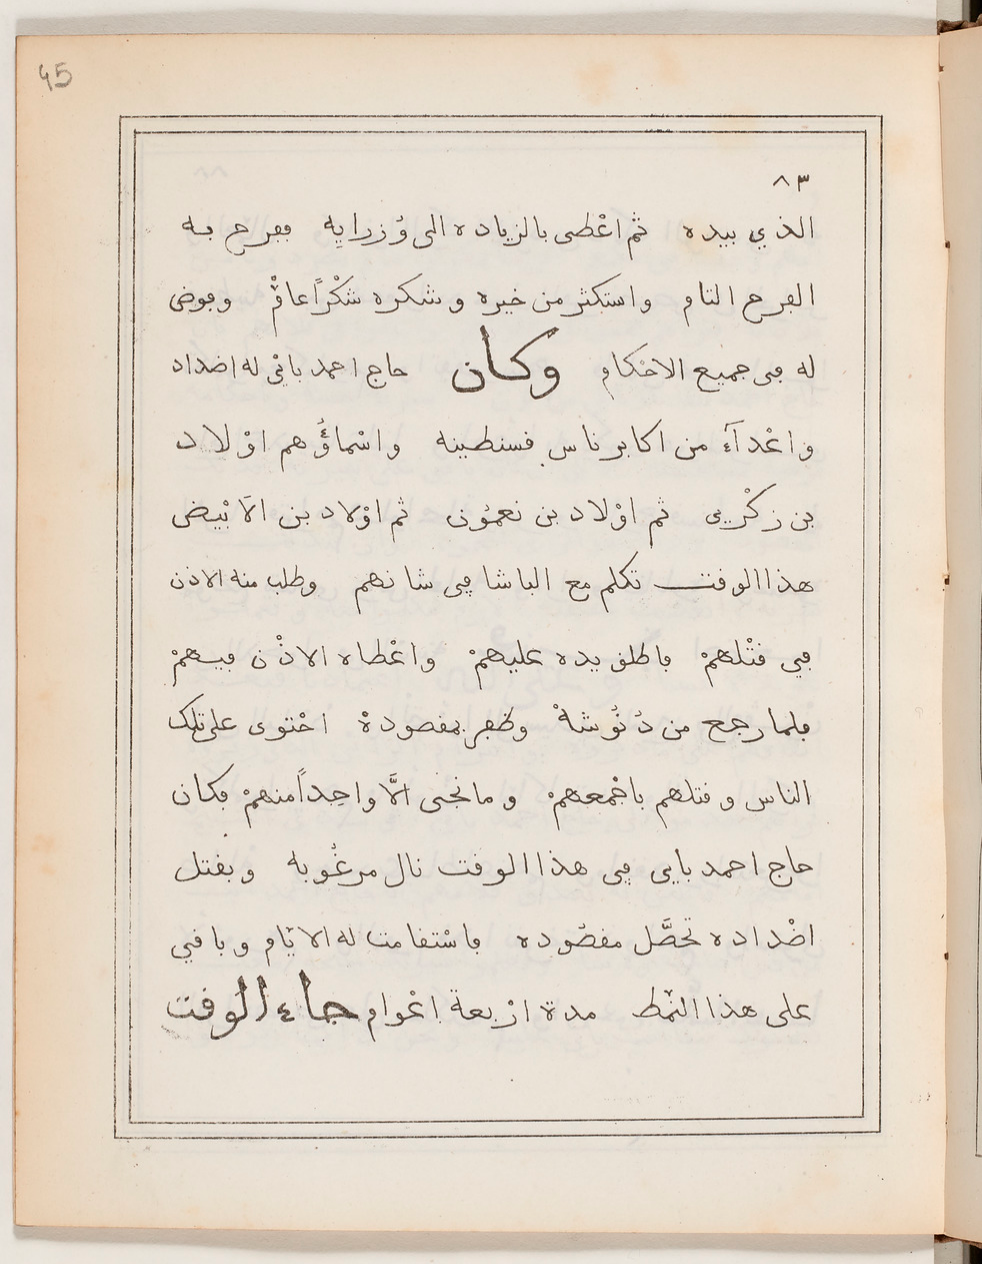 45
٨٣
الذي بيده ثم اعْطى بالزياده الى وُزرايه ففرح به
الفرح التام واستكثر من خيره وشكره شكْراً عاقْ وفوض
له في جميع الاحْكام وكان حاج احمد باقي له اضداد
واعْدآء من اكابر ناس قسنطينه واسْماؤُهم اوْلاد
بن زكْري ثم اوْلاد بن نعمُون ثم اوْلاد بن الاَبْيض
هذا الوقت تكلم مع الباشا في شانهم وطلب منه الاذن
في قتْلهمْ فاطلق يده عليهمْ واعْطاه الاذْن فيهمْ
فلما رجع من دُنُوشهْ وظفر بمقصودهْ احْتوى على تلك
الناس وقتلهم باجْمعهمْ وما نجى الاَّ واحِداً منهمْ فكان
حاج احمد بايي في هذا الوقت نال مرغُوبه وبقتل
اضْداده تحصَّل مقصُوده فاسْتقامت له الايّام وباقي
على هذا النّمط مدة ارْبعة اعْوام جاء الوقت